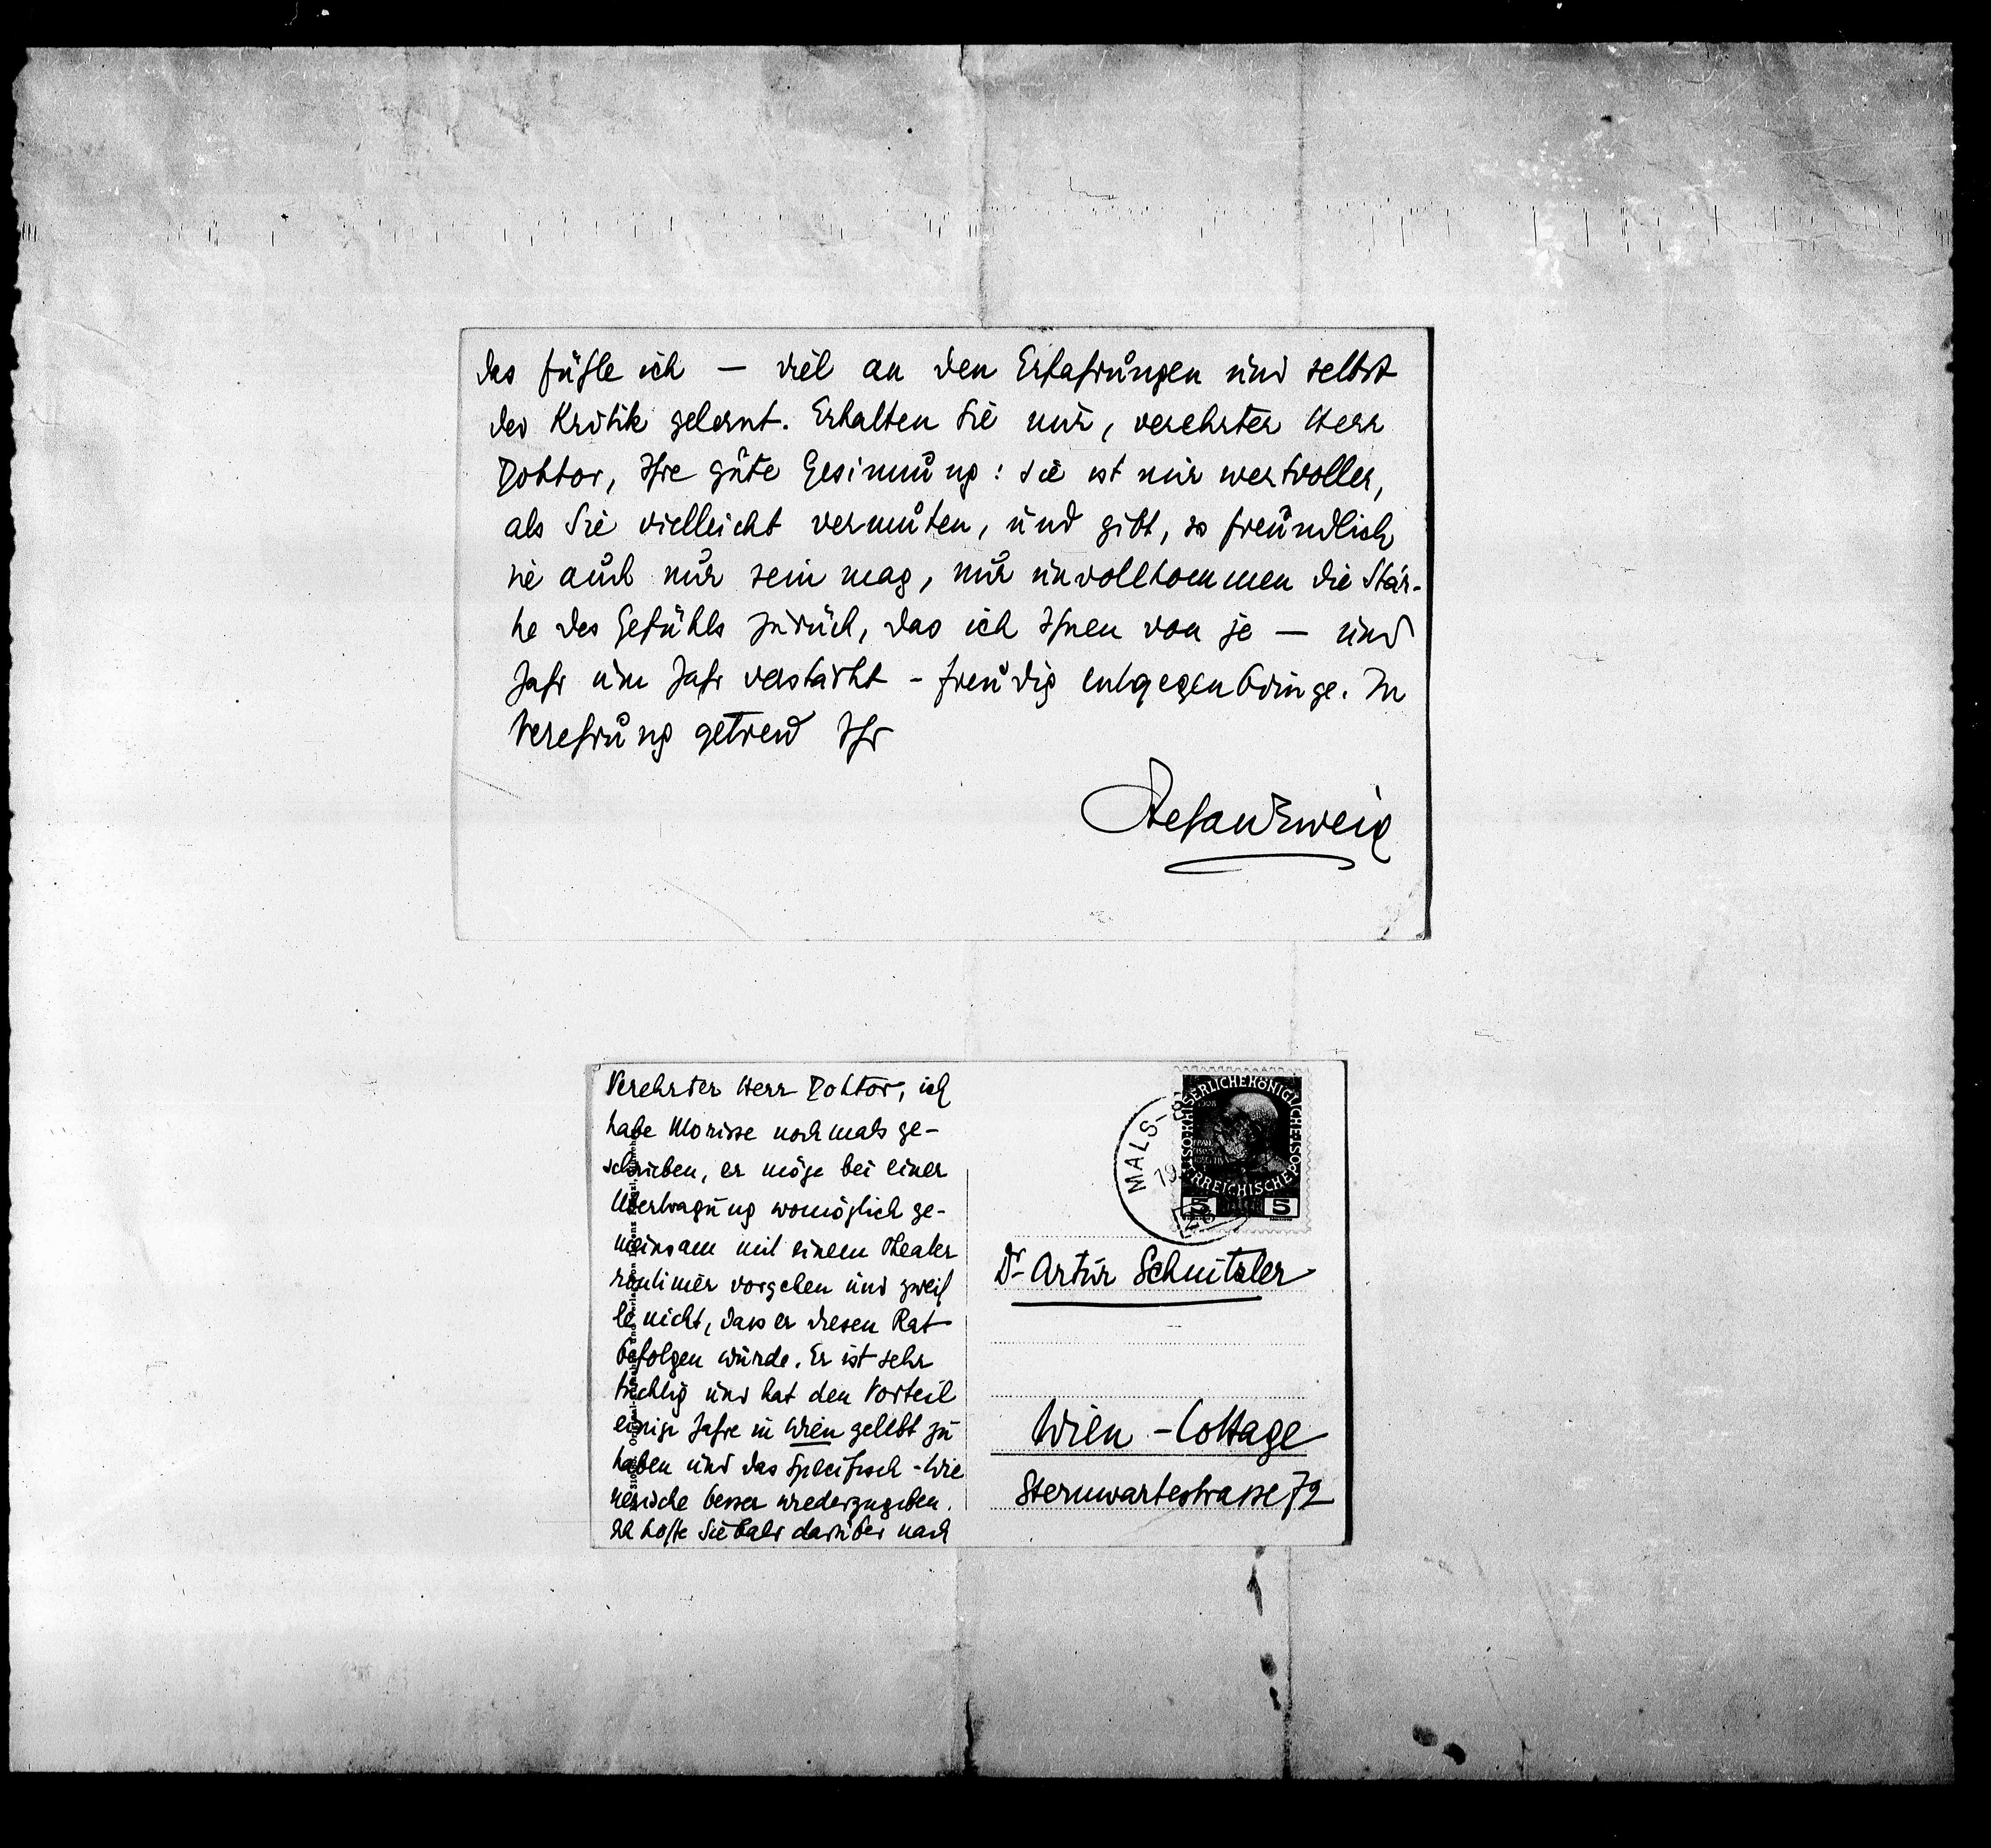 das fühle ich — viel an den Erfahrungen und selbst
der Kritik gelernt. Erhalten Sie mir, verehrter Herr
Doktor, Ihre gute Gesinnung: sie ist mir wertvoller,
als Sie vielleicht vermuten, und gibt, so freundlich
sie auch nur sein mag, nur unvollkommen die Stär-
ke des Gefühls zurück, das ich Ihnen von je — und
Jahr um Jahr verstärkt - freudig entgegenbringe. In
Verehrung getreu Ihr
Stefan Zweig
Verehrter Herr Doktor, ich
habe Morisse nochmals ge-
schrieben, er möge bei einer
Übertragung womöglich ge-
meinsam mit einem Theater
routinier vorgehen und zweif
le nicht, dass er diesen Rat
befolgen würde. Er ist sehr
tüchtig und hat den Vorteil
einige Jahre in Wien gelebt zu
haben und das Specifisch-Wie
nerische besser wiederzugeben.
Ich hoffe Sie bald darüber nach
MALS-
19
KAISERLICHE KÖNIGLICHE
ÖSTERREICHISCHE POST
1908
5 5
Dr Artur Schnitzler
Wien - Cottage
Sternwartestrasse 72